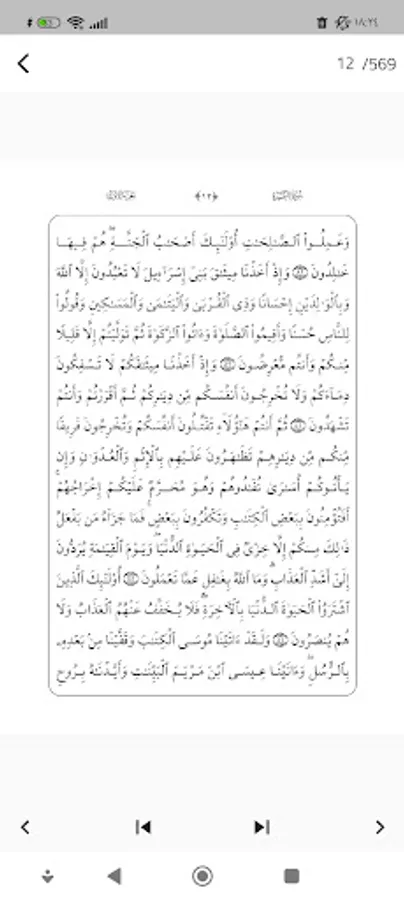 ١٨:٢٤
12 /569
﴿١٢﴾
وَعَمِلُوا۟ ٱلصَّـٰلِحَـٰتِ أُو۟لَـٰٓئِكَ أَصْحَـٰبُ ٱلْجَنَّةِۖ هُمْ فِيهَا
خَـٰلِدُونَ وَإِذْ أَخَذْنَا مِيثَـٰقَ بَنِىٓ إِسْرَٰٓءِيلَ لَا تَعْبُدُونَ إِلَّا ٱللَّهَ
وَبِٱلْوَٰلِدَيْنِ إِحْسَانًا وَذِى ٱلْقُرْبَىٰ وَٱلْيَتَـٰمَىٰ وَٱلْمَسَـٰكِينِ وَقُولُوا۟
لِلنَّاسِ حُسْنًا وَأَقِيمُوا۟ ٱلصَّلَوٰةَ وَءَاتُوا۟ ٱلزَّكَوٰةَ ثُمَّ تَوَلَّيْتُمْ إِلَّا قَلِيلًا
مِّنكُمْ وَأَنتُم مُّعْرِضُونَ وَإِذْ أَخَذْنَا مِيثَـٰقَكُمْ لَا تَسْفِكُونَ
دِمَآءَكُمْ وَلَا تُخْرِجُونَ أَنفُسَكُم مِّن دِيَـٰرِكُمْ ثُمَّ أَقْرَرْتُمْ وَأَنتُمْ
تَشْهَدُونَ ثُمَّ أَنتُمْ هَـٰٓؤُلَآءِ تَقْتُلُونَ أَنفُسَكُمْ وَتُخْرِجُونَ فَرِيقًا
مِّنكُم مِّن دِيَـٰرِهِمْ تَظَـٰهَرُونَ عَلَيْهِم بِٱلْإِثْمِ وَٱلْعُدْوَٰنِ وَإِن
يَأْتُوكُمْ أُسَـٰرَىٰ تُفَـٰدُوهُمْ وَهُوَ مُحَرَّمٌ عَلَيْكُمْ إِخْرَاجُهُمْۚ
أَفَتُؤْمِنُونَ بِبَعْضِ ٱلْكِتَـٰبِ وَتَكْفُرُونَ بِبَعْضٍۚ فَمَا جَزَآءُ مَن يَفْعَلُ
ذَٰلِكَ مِنكُمْ إِلَّا خِزْىٌ فِى ٱلْحَيَوٰةِ ٱلدُّنْيَاۖ وَيَوْمَ ٱلْقِيَـٰمَةِ يُرَدُّونَ
إِلَىٰٓ أَشَدِّ ٱلْعَذَابِۗ وَمَا ٱللَّهُ بِغَـٰفِلٍ عَمَّا تَعْمَلُونَ أُو۟لَـٰٓئِكَ ٱلَّذِينَ
ٱشْتَرَوُا۟ ٱلْحَيَوٰةَ ٱلدُّنْيَا بِٱلْـَٔاخِرَةِۖ فَلَا يُخَفَّفُ عَنْهُمُ ٱلْعَذَابُ وَلَا
هُمْ يُنصَرُونَ وَلَقَدْ ءَاتَيْنَا مُوسَى ٱلْكِتَـٰبَ وَقَفَّيْنَا مِنۢ بَعْدِهِۦ
بِٱلرُّسُلِۖ وَءَاتَيْنَا عِيسَى ٱبْنَ مَرْيَمَ ٱلْبَيِّنَـٰتِ وَأَيَّدْنَـٰهُ بِرُوحِ